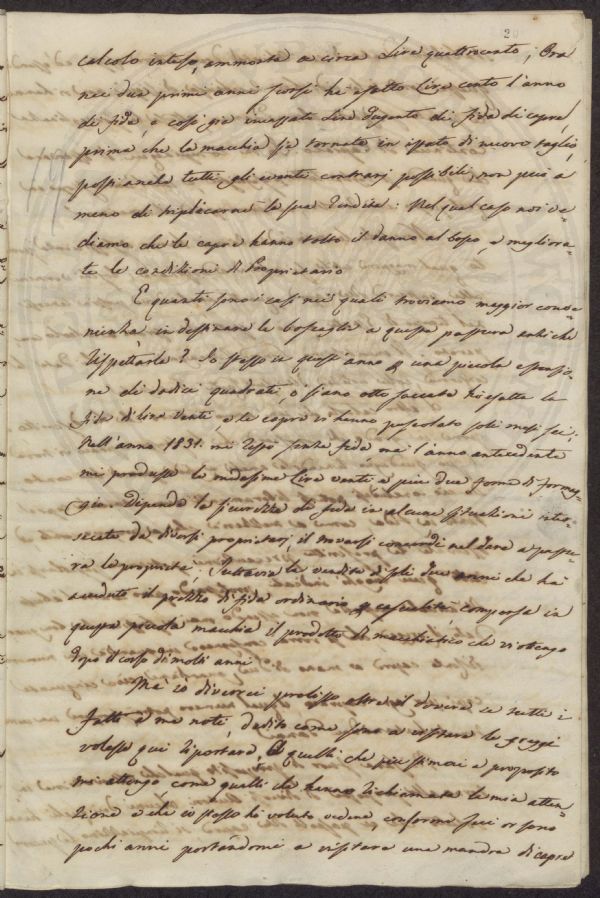 20
calcolo inteso, ammonta a circa Lire quattrocento; Ora
nei due primi anni scorsi ha esatto Lire cento l'anno
di fida, e così già incassate Lire dugento di fida di capre,
prima che la macchia sia tornata in istato di nuovo taglio,
possi anche tutti gli eventi contrarj possibili, non può a
meno di triplicarne la sua rendita: Nel qual caso noi ve-
diamo che le capre hanno tolto il danno al bosco, e migliora-
te le condizioni del Proprietario
E quanti sono i casi nei quali troviamo maggior conve-
nienza in destinare le boscaglie a questa pastura anziché
rispettarle? Io stesso in quest'anno una piccola estensio-
ne di dodici quadrati, o siano otto saccate hò esatta la
fida di Lire venti, e le capre vi hanno pascolato soli mesi sei;
Nell'anno 1831. mi restò senza fida ma l'anno antecedente
mi produsse le medesime Lire venti e più due forme di formag-
gio. Dipende la scarsità di fida in alcune situazioni inter-
secate da diversi proprietarj, il trovarsi concordi nel dare a pastu-
ra le proprietà, Tuttavia la vendita di soli due anni che hà
avuto il prezzo di fida ordinario, compensa in
questa piccola macchia il prodotto del macchiatico che si ottengo
dopo il corso di molti anni
Ma io diverrei prolisso oltre il dovere se tutti i
fatti a me noti, dedito come sono a visitare le greggi
volessi qui riportare, e quelli che più stimai a proposito
mi attengo, come quelli che hanno richiamata la mia atten-
zione e che io stesso hò voluto vedere conforme feci or sono
pochi anni portandomi a visitare una mandra di capre